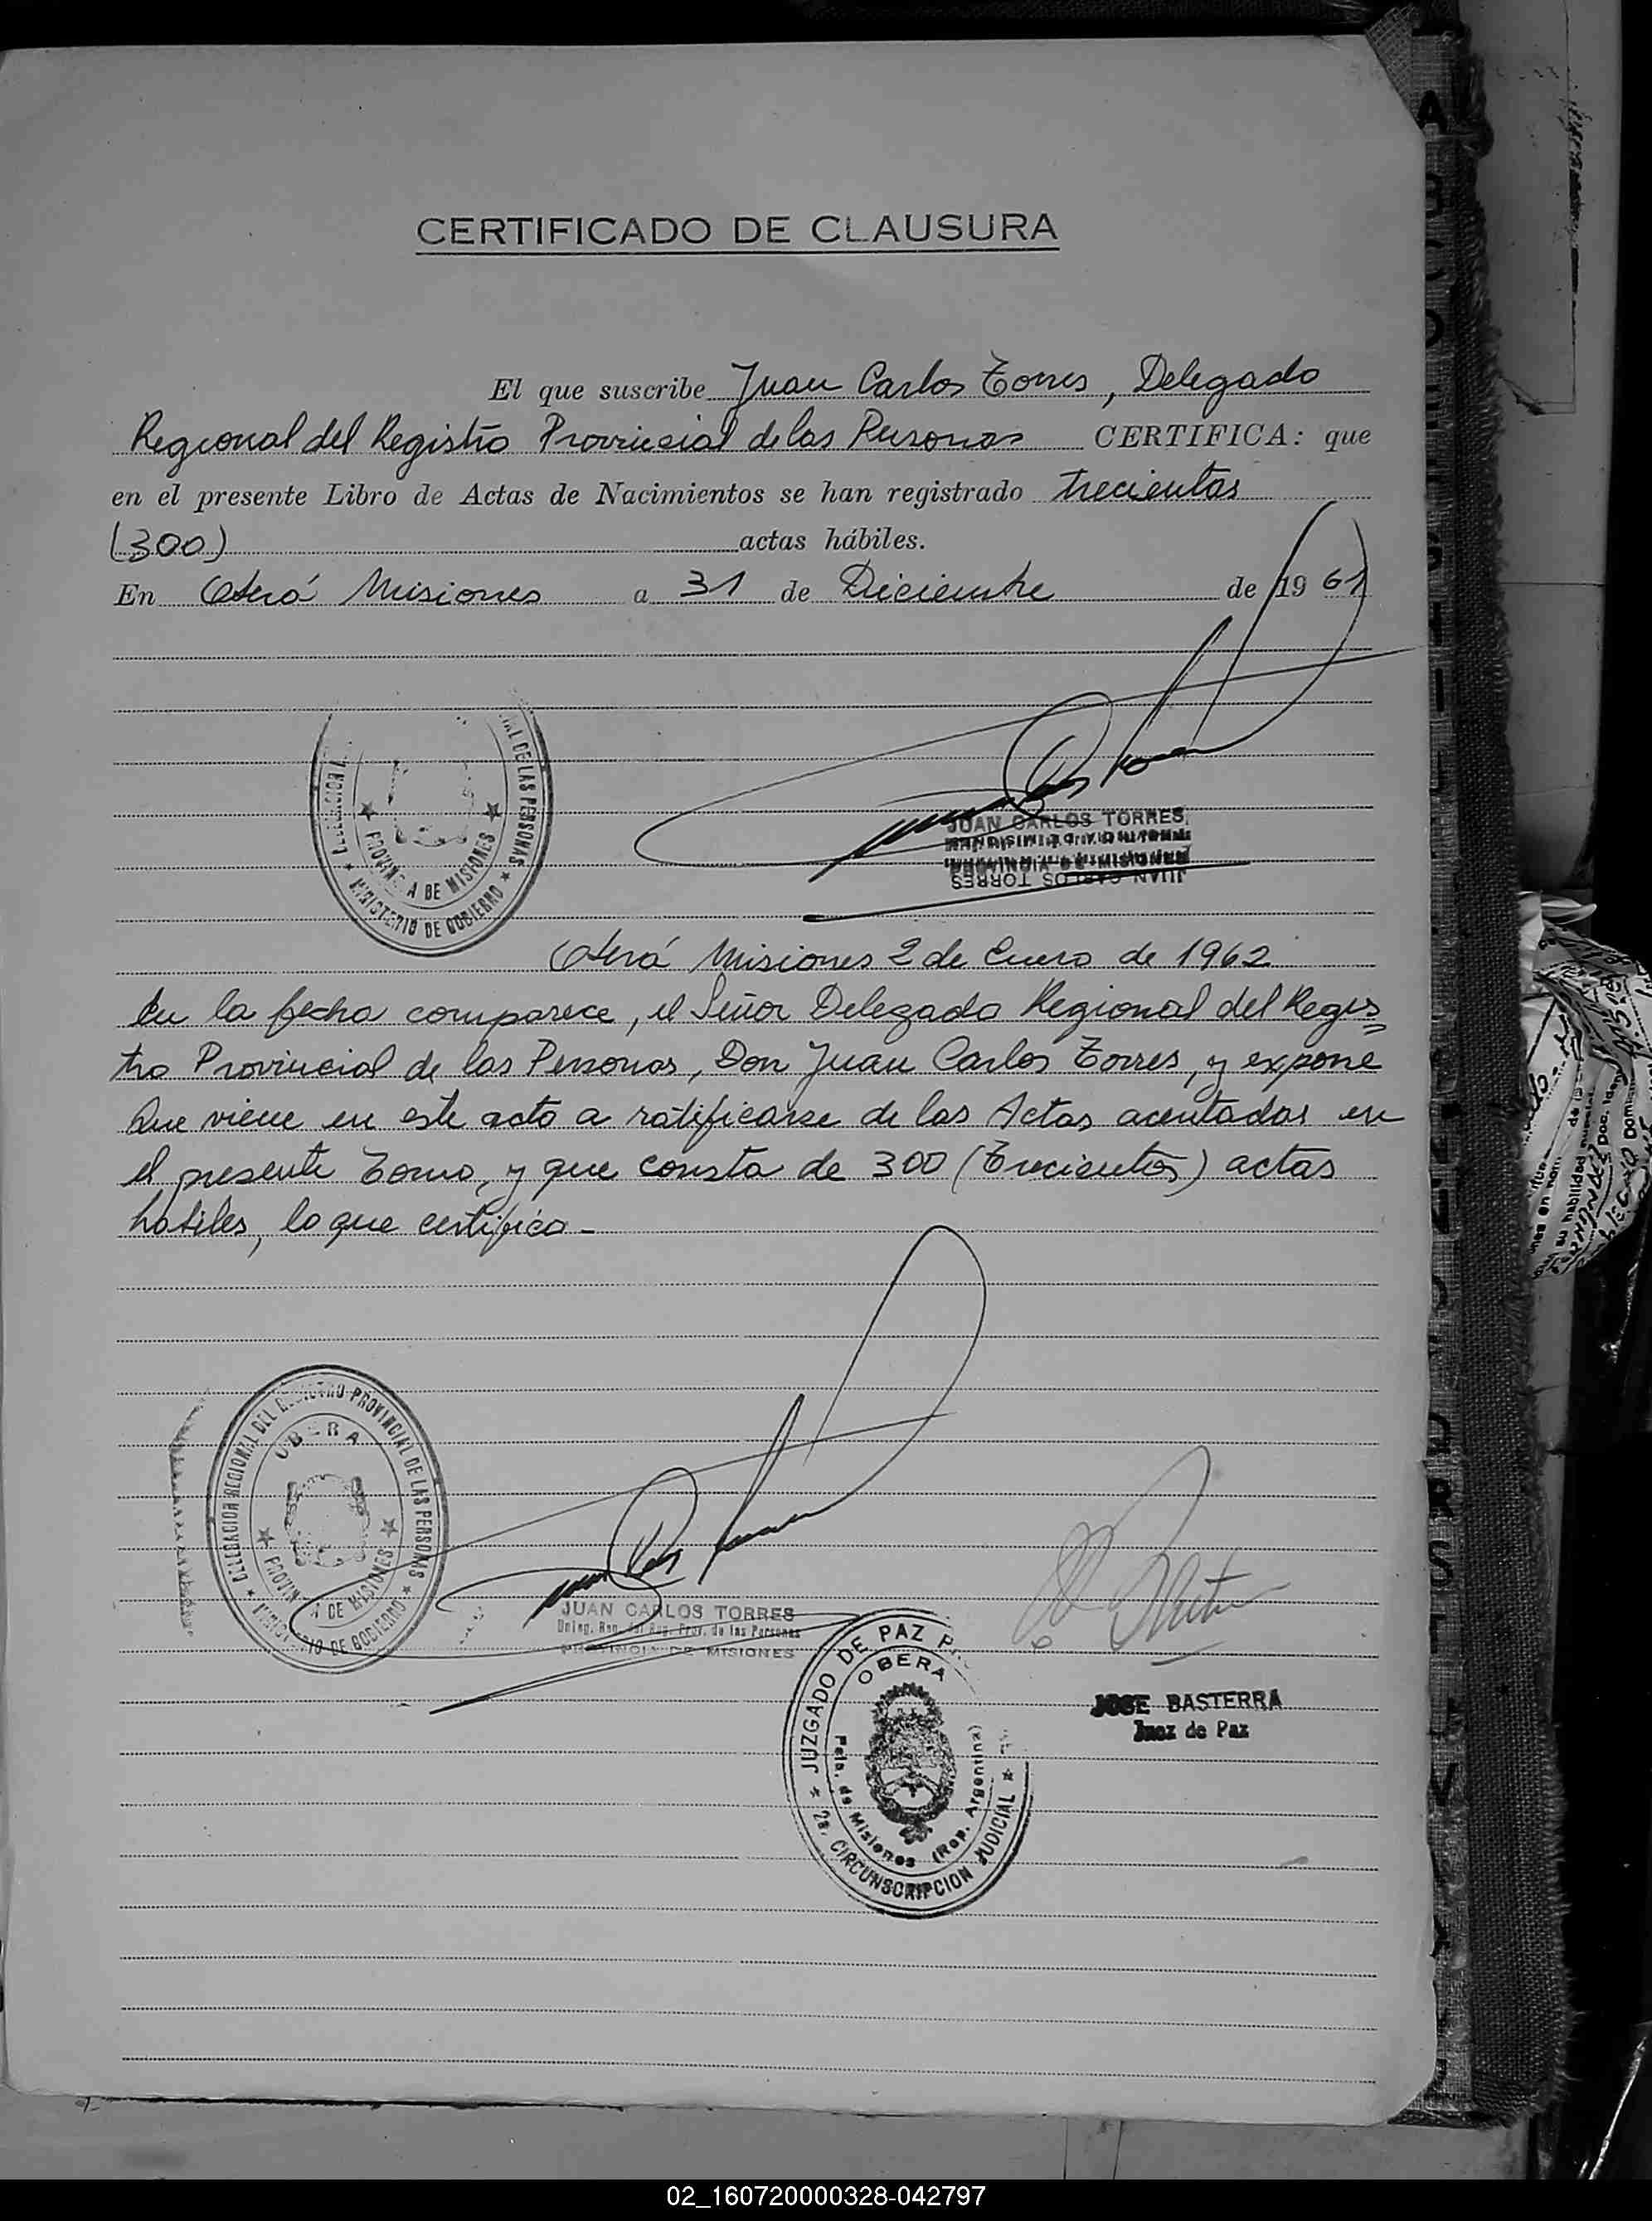 CERTIFICADO DE CLAUSURA
El que suscribe Juan Carlos Torres, Delegado
Regional del Registro Provincial de las Personas CERTIFICA: que
en el presente Libro de Actas de Nacimientos se han registrado trecientas
(300) actas hábiles.
En Oberá Misiones a 31 de Diciembre de 1961
DE LAS PERSONAS
PROVINCIA DE MISIONES
MINISTERIO DE GOBIERNO
JUAN CARLOS TORRES
PROVINCIA DE MISIONES
JUAN CARLOS TORRES
Oberá Misiones 2 de Enero de 1962
En la fecha comparece, el Señor Delegado Regional del Regis=
tro Provincial de las Personas, Don Juan Carlos Torres, y expone
Que viene en este acto a ratificarse de las Actas acentadas en
el presente Tomo, y que consta de 300 (Trecientos) actas
habiles, lo que certifico-
DELEGACION REGIONAL DEL REGISTRO PROVINCIAL DE LAS PERSONAS
OBERA
PROVINCIA DE MISIONES
MINISTERIO DE GOBIERNO
JUAN CARLOS TORRES
Deleg. Reg. del Reg. Prov. de las Personas
PROVINCIA DE MISIONES
JUZGADO DE PAZ
OBERA
Pcia. de Misiones (Rep. Argentina)
2a. CIRCUNSCRIPCION JUDICIAL
JOSE BASTERRA
Juez de Paz
02_160720000328-042797